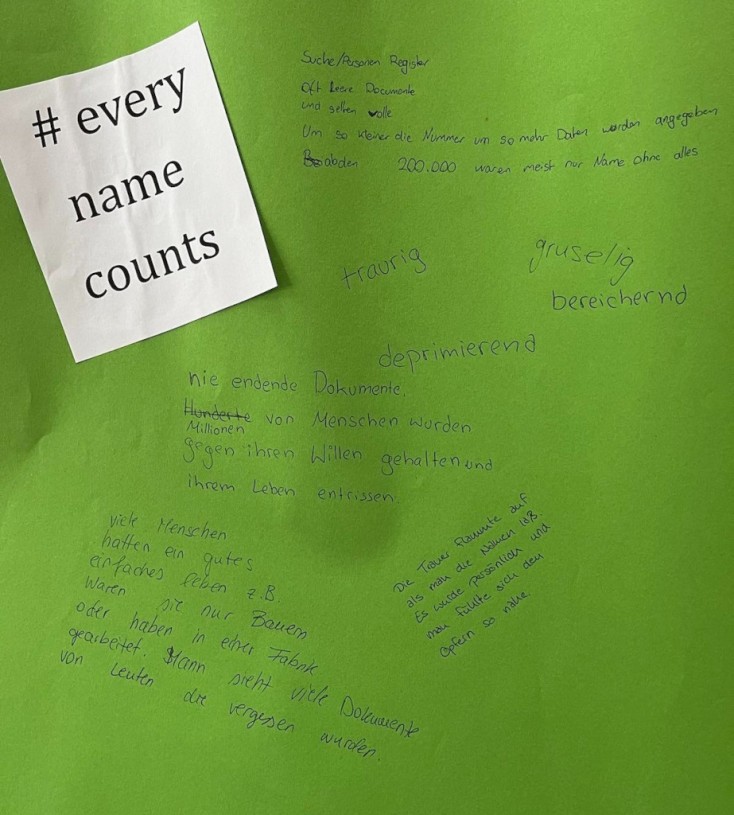 # every
name
counts
Suche/Personen Register
Oft leere Documente
und selten volle
Um so kleiner die Nummer um so mehr Daten werden angegeben
abden 200.000 waren meist nur Name ohne alles
traurig
gruselig
bereichernd
deprimierend
nie endende Dokumente,
Hunderte von Menschen wurden
Millionen
gegen ihren Willen gehalten und
ihrem Leben entrissen
viele Menschen
hatten ein gutes
einfaches Leben z.B
waren sie nur Bauern
oder haben in einer Fabrik
gearbeitet. Mann sieht viele Dokumente
von Leuten die vergessen wurden.
Die Trauer flammte auf
als man die Namen laß.
Es wurde persönlich und
man fühlte sich den
Opfern so nahe